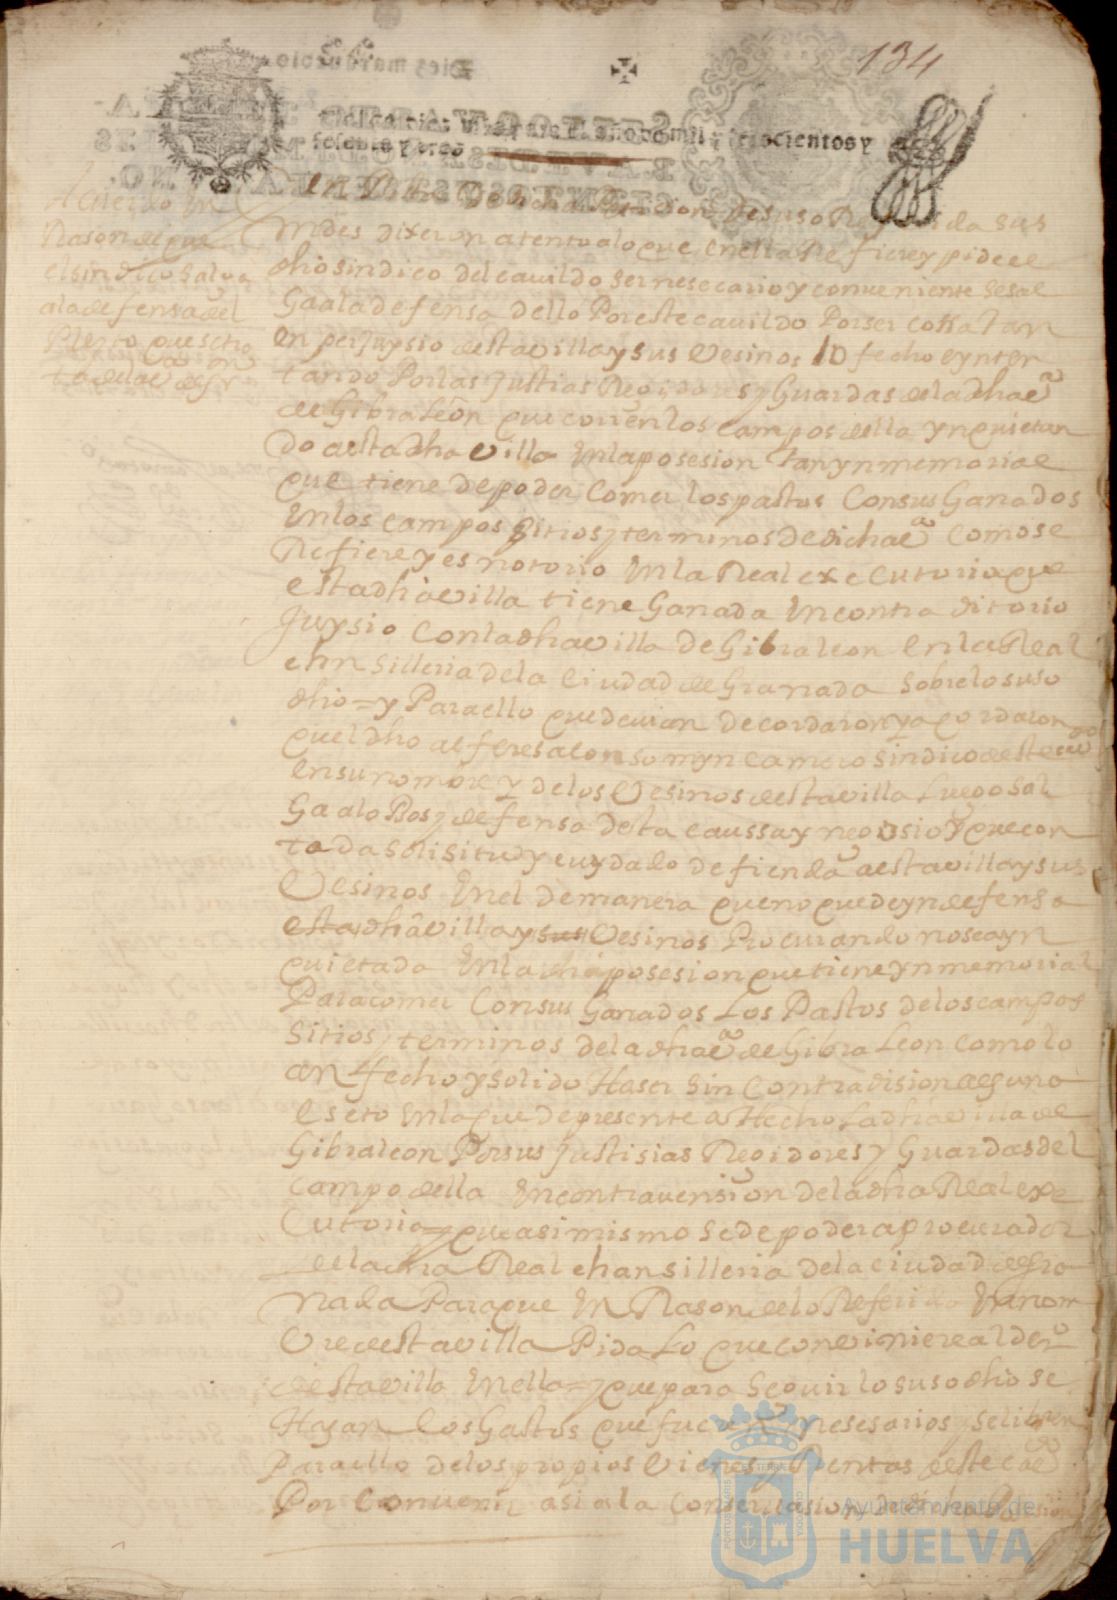 134
Diez maravedis
refrenta y tres
mil y seiscientos y
Acuerdo en
Rason de que
el sindico salga
a la defensa del
Pleito que se tra
ta de la
dixeron atento a lo que en ella Refiere y pide el
dho sindico del cauildo ser nesecario y conueniente se sal
Ga a la defensa dello Por este cauildo Por ser cossa tan
En perjuysio desta villa y sus Vesinos lo fecho e ynten
tando Por las justias Regidores y Guardas de la dha va
de Gibraleõn que corren los campos della ynquietan
do a esta dha villa En la posesion tan ynmemorial
que tiene de poder Comer los pastos Con sus Ganados
En los campos sitios y terminos de dicha va como se
Refiere y es notorio En la Real executoria que
esta dha villa tiene Ganada En contraditorio
Juysio Con la dha villa de Gibraleon En la Real
chansilleria de la Ciudad de Granada sobre lo suso
dho = y Para ello que deuian de cordar y acordaron
que el dho alferes alonso myn camero sindico deste cauo
En su nombre y de los Vesinos desta villa Luego sal
Ga a la Bos y defensa desta caussa y negosio y que con
toda solisitu y cuydado defienda a esta villa y sus
Vesinos En el de manera que no quede yndefensa
esta dha villa y sus Vesinos Procurando no sea yn
quietada En la dha posesion que tiene ynmemorial
Para comer Con sus Ganados Los Pastos de los campos
Sitios y terminos de la dha va de Gibraleon como lo
an fecho y solido Haser sin Contradision alguna
Eseto En la que de presente a Hecho La dha villa de
Gibraleon Por sus Justisias Regidores y Guardas del
Campo della En contrauension de la dha Real exe
Cutoria = y que asimismo se de poder a procurador
de la dha Real chansilleria de la ciudad de Gra
nada Para que En Rason de lo Referido En nom
Vre desta villa Pida Lo que conviniere al dero
desta villa En ella = y que para seguir lo susodho se
Hagan los Gastos que fueren nesesarios y se libren
Para ello de los propios Vienes y Rentas deste cauo
Por Convenir asi a la Conseruasion de dicha Posesion
Ayuntamiento de
HUELVA